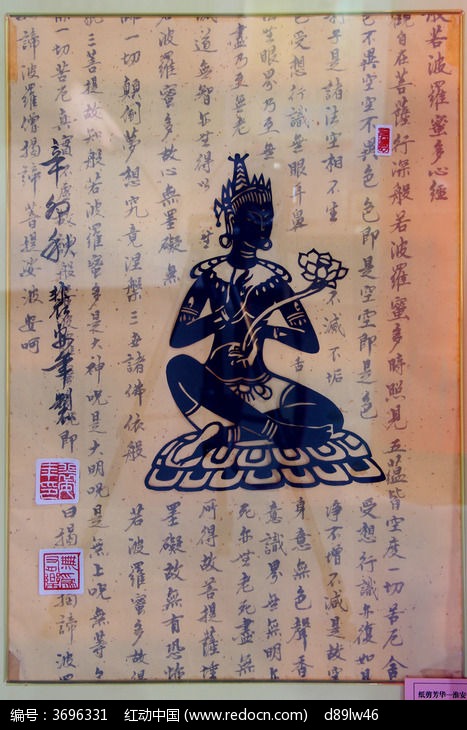 般若波羅蜜多心經
觀自在菩薩行深般若波羅蜜多時照見五蘊皆空度一切苦厄舍
色不異空空不異色色即是空空即是色
受想行識亦復如是
利子是諸法空相不生
不滅不垢
淨不增不減是故空
色受想行識無眼耳鼻
舌
身意無色聲香
無眼界乃至無
意識界無無明
盡乃至無老
死亦無老死盡無
滅道無智亦無得以
無
所得故菩提薩埵
若波羅蜜多故心無罣礙無
罣礙故無有恐怖
一切顛倒夢想究竟涅槃三世諸佛依般
若波羅蜜多故得
藐三菩提故知般若波羅蜜多是大神咒是大明咒是無上咒無等
能除一切苦厄真
即
曰揭
揭諦
波羅
諦波羅僧揭諦菩提娑婆訶
辛卯秋
裴安年製
纸剪芳华—淮安
编号：3696331 红动中国 (www.redocn.com) d89lw46